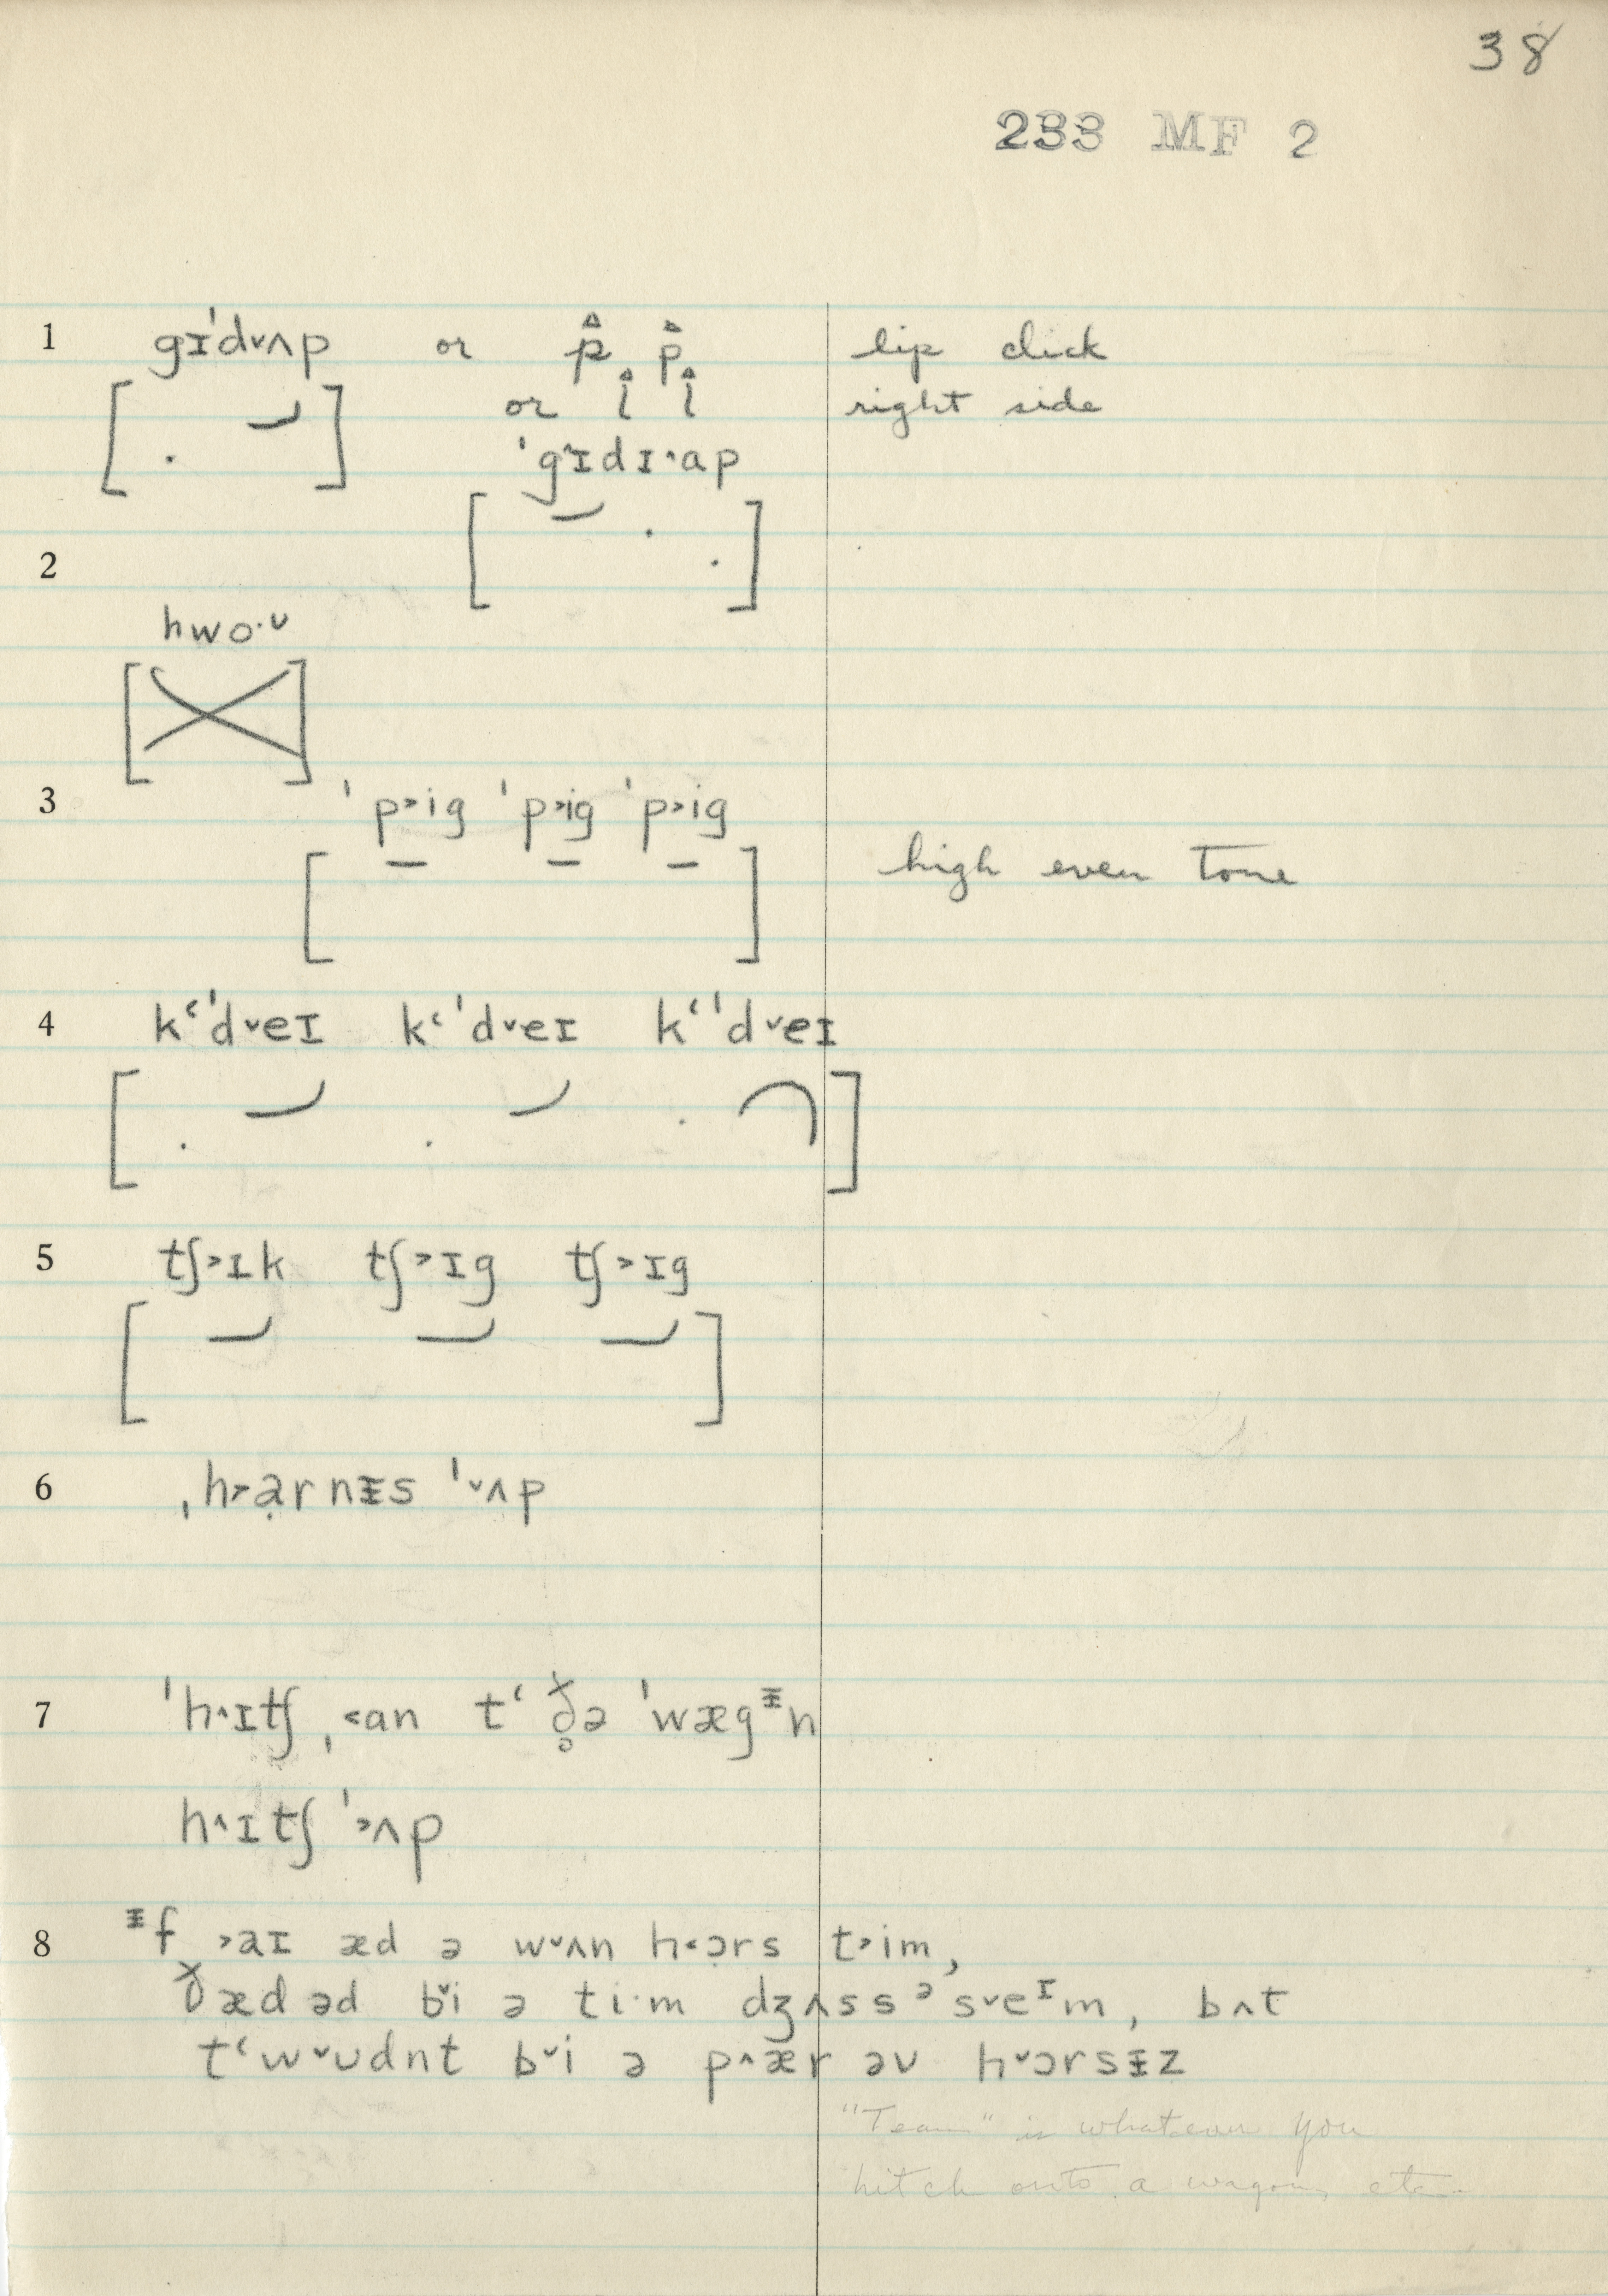 38
233 MF 2
1 gɪˈd˅ʌp or p̂ p̂ lip click
or l̂ l̂ right side
ˈg˄ɪdɪ˄ap
2
hwo·ᴜ
3 ˈp˃ig ˈp˃ig ˈp˃ig
high even tone
4 kʻˈd˅eɪ kʻˈd˅eɪ kʻˈd˅eɪ
5 tʃ˃ɪk tʃ˃ɪg tʃ˃ɪg
6 ˌh˃ạrnᵻs ˈ˅ʌp
7 ˈh˄ɪtʃ ˌ˂an tʻ ð̥̆ə ˈwægᵻn
h˄ɪtʃ ˈ˃ʌp
8 ᵻf ˃aɪ æd ə w˅ʌn h˂ɔ̣rs t˃im,
ð̆æd əd b˅i ə ti·m dʒʌss ᵊ s˅eᶦm, bʌt
tʻw˅ᴜdnt b˅i ə p˄ær əv h˅ɔrsᵻz
"Team" is whatever you
hitch onto a wagon, etc.